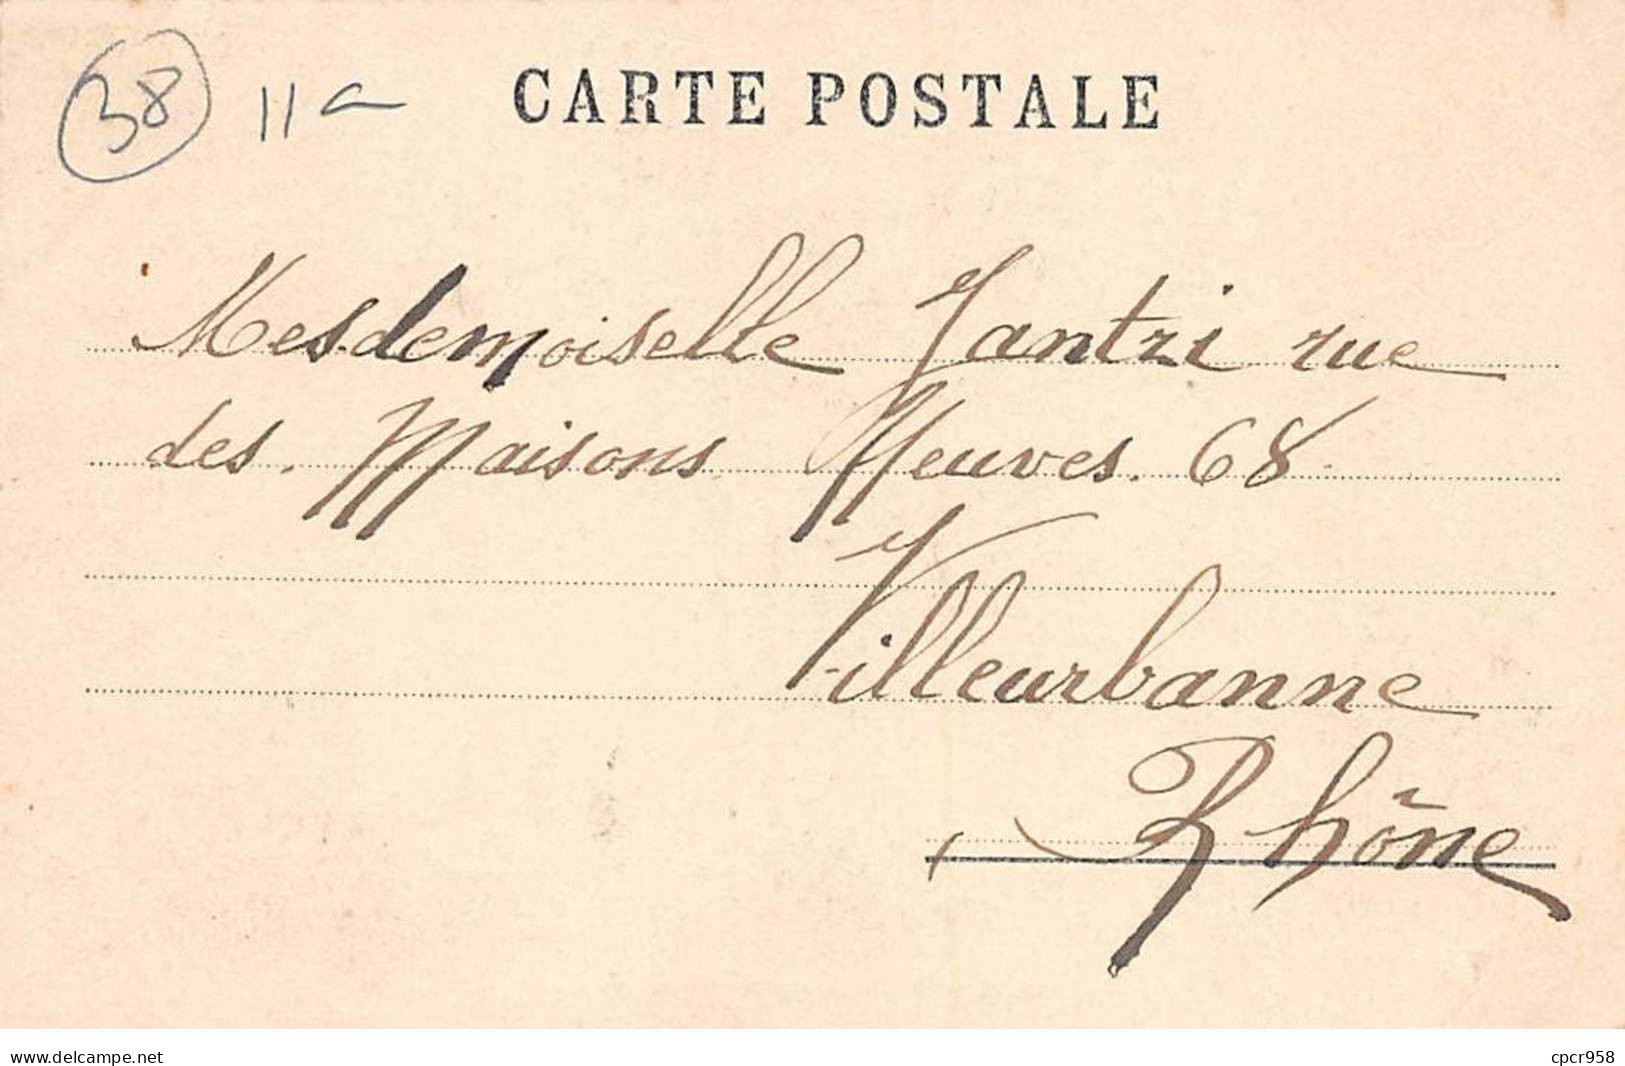 38 11
CARTE POSTALE
Mesdemoiselle Jantzi rue
des. Maisons Neuves. 68
Villeurbanne
Rhône
www.delcampe.net cpcr958